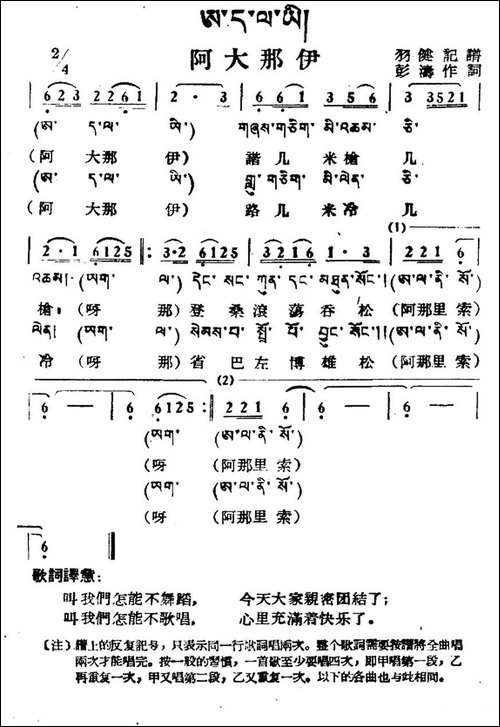 ཨ་ད་ལ་ཡི།
阿大那伊
2/4
羽健記譜
彭濤作詞
6 2 3 2 2 6 1 2 · 3 6 6 1 3 5 6 3 3 5 2 1
(ཨ་ ད་ ལ་ ཡི་) གཞས་གཅིག་ མི་འཆམ་ ཅི་
(阿 大那 伊) 諧几 米槍 几
(ཨ་ ད་ ལ་ ཡི་) གླུ་གཅིག་ མི་ལེན་ ཅི་
(阿 大那 伊) 路几 米冷 几
(1)
2 · 1 6 1 2 5 3 · 2 6 1 2 5 3 2 1 2 1 6 1 · 3 2 2 1 6
འཆམ། (ཡག་ ལ་) དེང་ སང་ ཀུན་ ད་ མཐུན་སོང་། (ཨ་ལ་ནི་ སོ་)
槍： (呀 那) 登 桑 滾 蕩 吞 松 (阿那里 索)
ལེན། (ཡག་ ལ་) སེམས་པ་ སྤྲོ་ པོ་ བྱུང་སོང་། (ཨ་ལ་ནི་ སོ་)
冷 (呀 那) 省 巴 左 博 雄 松 (阿那里 索)
(2)
6 — 6 6 1 2 5 2 2 1 6 6 — 6 —
(ཡག་ (ཨ་ལ་ནི་ སོ་)
(呀 (阿那里 索)
(ཡག་ (ཨ་ལ་ནི་ སོ་)
(呀 (阿那里 索)
6 —
歌詞譯意：
叫我們怎能不舞蹈， 今天大家親密团結了；
叫我們怎能不歌唱。 心里充滿着快乐了。
〔注〕譜上的反复記号，只表示同一行歌詞唱兩次。整个歌詞需要按譜將全曲唱
兩次才能唱完。按一般的習慣，一首歌至少要唱四次，即甲唱第一段，乙
再重复一次，甲又唱第二段，乙又重复一次。以下的各曲也与此相同。